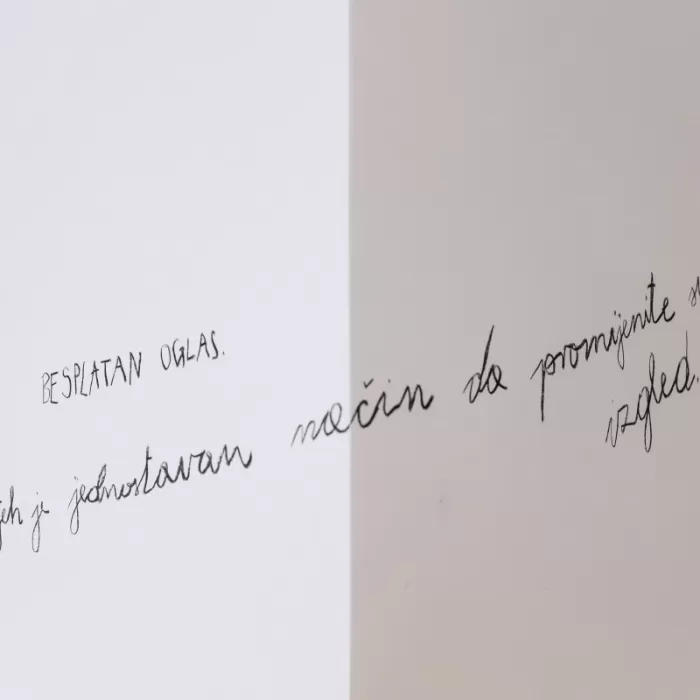 BESPLATAN OGLAS.
je jednostavan način da promijenite
izgled.